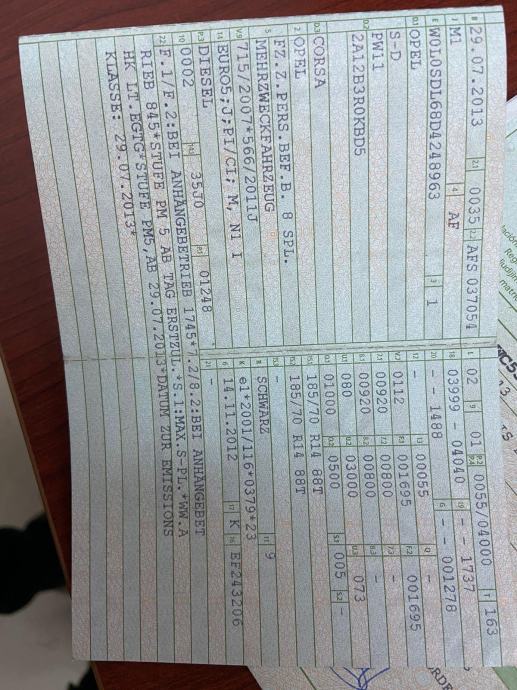 B 29.07.2013 2.1 0035 2.2 AFS 037054
J M1 4 AF
E W0L0SDL68D4248963 3 1
D.1 OPEL
D.2 S-D
PW11
2A12B3R0KBD5
D.3 CORSA
2 OPEL
5 FZ.Z.PERS.BEF.B. 8 SPL.
MEHRZWECKFAHRZEUG
V.9 715/2007*566/2011J
14 EURO5;J:PI/CI; M, N1 I
P.3 DIESEL
10 0002 14.1 35J0 P.1 01248
L 02 9 01 P.2/P.4 0055/04000 T 163
18 03999 - 04040 19 - - 1737
20 - - 1488 G - - 001278
12 - 13 00055 Q -
V.7 0112 F.1 001695 F.2 001695
7.1 00920 7.2 00800 7.3 -
8.1 00920 8.2 00800 8.3 -
U.1 080 U.2 03000 U.3 073
O.1 01000 O.2 0500 S.1 005 S.2 -
15.1 185/70 R14 88T
15.2 185/70 R14 88T
15.3 -
R SCHWARZ 11 9
K e1*2001/116*0379*23
6 14.11.2012 17 K 16 EF243206
21 -
22 F.1/F.2:BEI ANHÄNGEBETRIEB 1745*7.2/8.2:BEI ANHÄNGEBET
RIEB 845*STUFE PM 5 AB TAG ERSTZUL.*S.1:MAX.S-PL.*WW.A
HK LT.EGTG*STUFE PM5,AB 29.07.2013*DATUM ZUR EMISSIONS
KLASSE: 29.07.2013*